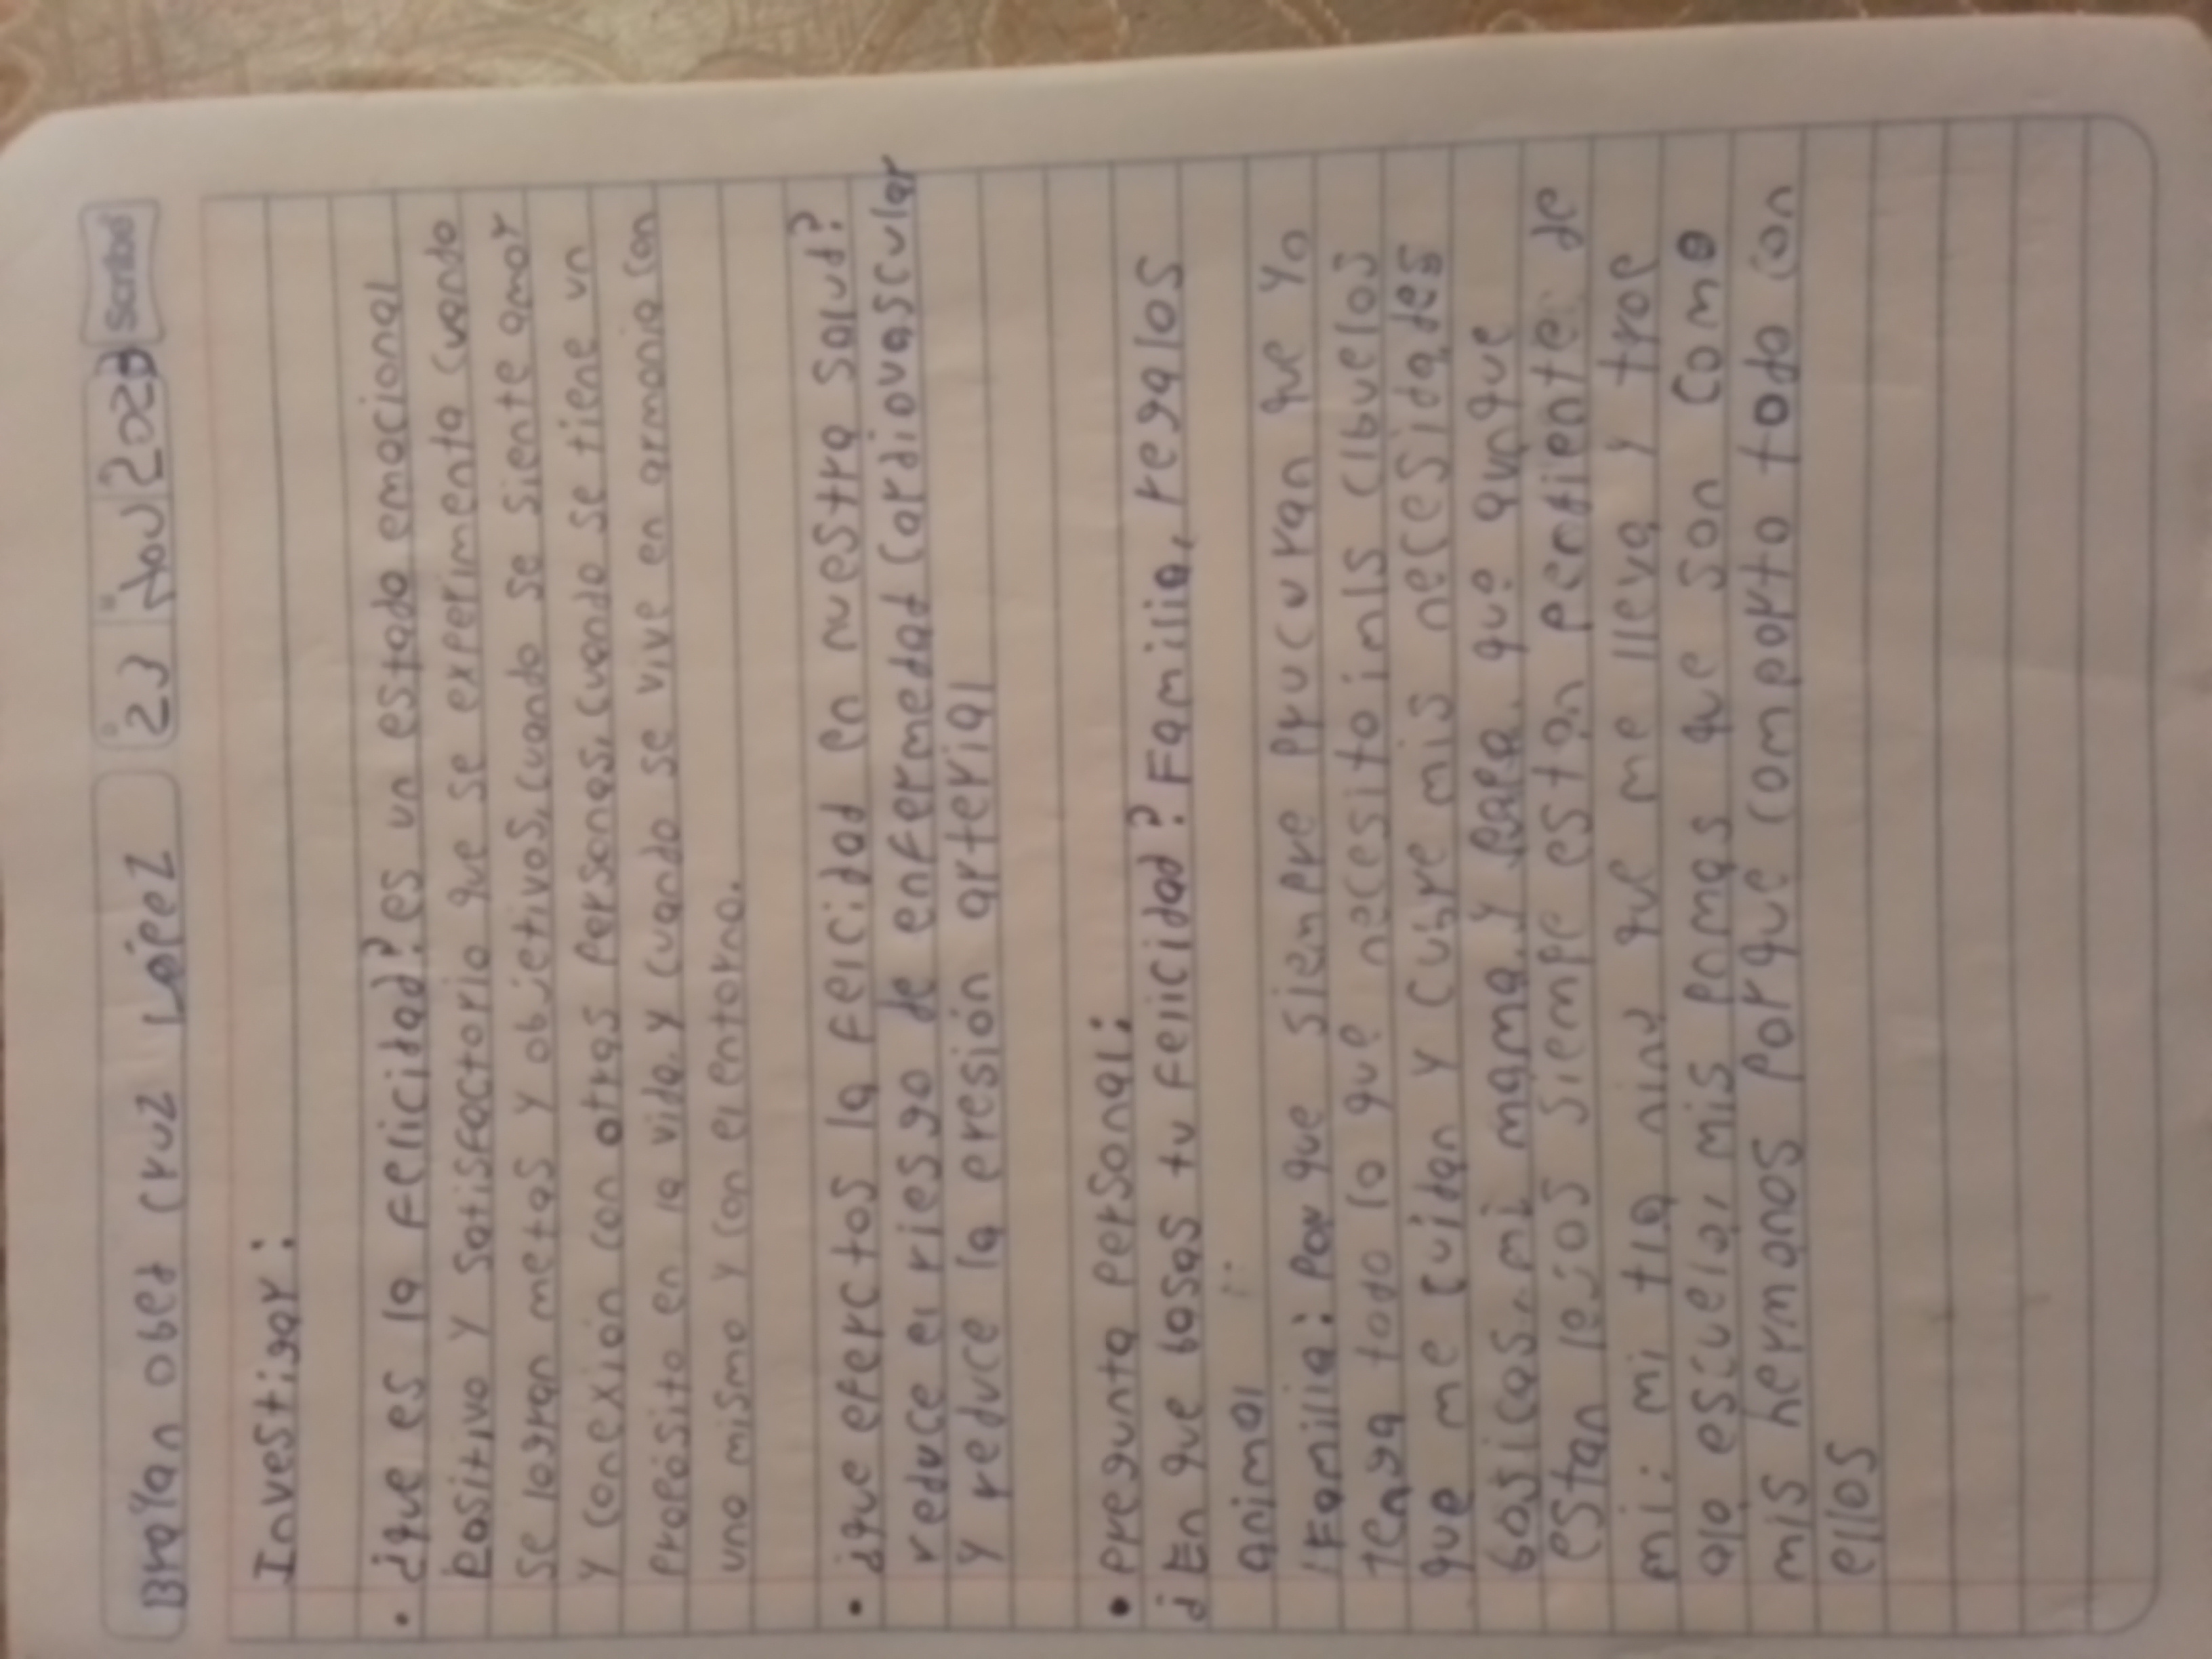 Brayan obed cruz López 23 nov 2023 Scribe
Investigar:
• ¿que es la felicidad? es un estado emocional
positivo y satisfactorio que se experimenta cuando
se logran metas y objetivos, cuando se siente amor
y conexión con otras personas, cuando se tiene un
propósito en la vida, y cuando se vive en armonia con
uno mismo y con el entorno.
• ¿que efectos la feicidad en nuestra salud?
reduce el riesgo de enfermedad cardiovascular
y reduce la presión arterial
• pregunta personal:
¿En que basas tu felicidad? Familia, regalos
animal
Familia: Por que siempre prucuran que yo
tenga todo lo que necesito
que me cuidan y cubre mis necesidades
basicas. mi mama y papa. que aunque
estan lejos siempe estan pendiente de
mi: mi tia que me lleva y trae
ala escuela, mis que son como
mis hermanos porque comparto todo con
ellos